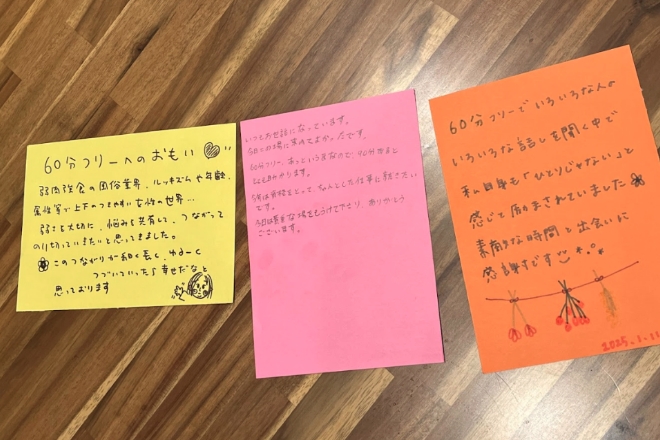 60分フリーへのおもい
弱肉強食の風俗業界、ルッキズムや年齢、
属性等で上下のつきやすい女性の世界…
弱さを大切に、悩みを共有して、つながって
のり切っていきたいと思ってきました。
このつながりが細く長く、ゆるーく
つづいていったら幸せだなと
思っております
いつもお世話になっています。
今日この場に来れてよかったです。
60分フリー、あっという間なので、90分だと
とても助かります。
今年は資格をとって、ちゃんとした仕事に就きたい
です。
今日は貴重な場をもうけて下さり、ありがとう
ございます。
60分フリーでいろいろな人の
いろいろな話しを聞く中で
私自身も「ひとりじゃない」と
感じて励まされていました
素敵な時間と出会いに
感謝です
2025.1.11